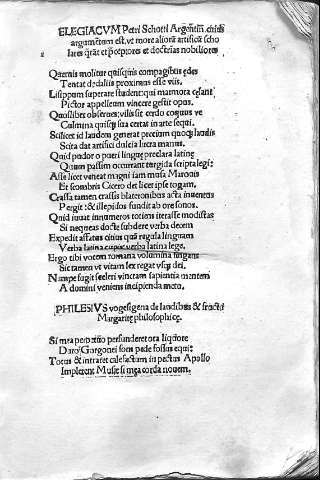 ELEGIACVM Petri Schotti Argentiñ. cuius
argumētum est, vt more aliorū artificū scho
lares q̃rāt et p̄ceptores et doctrias nobiliores
Quamuis molitur quisquis compagibus ędes
Tentat dędaliis proximus esse viis,
Lisippum superare student: qui marmora cęlant
Pictor appelleum vincere gestit opus.
Quoslibet obserues: vilis sit cerdo coquus ve
Culmina quisq; sua certat in arte sequi.
Scilicet id laudem generat precium quoq; laudis
Scita dat artifici dulcia lucra manus.
Quid pudor o pueri linguę preclara latinę
Quum passim occurrant turgida scripta legi:
Aste licet veneat magni iam musa Maronis
Et secombris Cicero det licet ipse togam,
Crassa tamen crassis blateronibus acta iuuentus
Pergit: & illepidos fundit ab ore sonos.
Quid iuuat innumeros totiens iterasse modistas
Si nequeas docte subdere verba decem
Expedit affatus citius quā regula linguam
Verba latina cupis: verba latina lege.
Ergo tibi votem romana volumina fingant
Sit tamen vt vitam lex regat vsq; dei.
Namq; fugit sceleri vinctam sapientia mentem
A domini veniens incipienda metu.
PHILESIVS vogesigena de laudibus & fructu
Margaritę philosophicę.
Si mea perpetuo perfunderet ora liquore
Daro! Gorgonei fons pede fossus equi:
Totus & intraret calefactum in pectus Apollo
Implerent Musę si mea corda nouem.